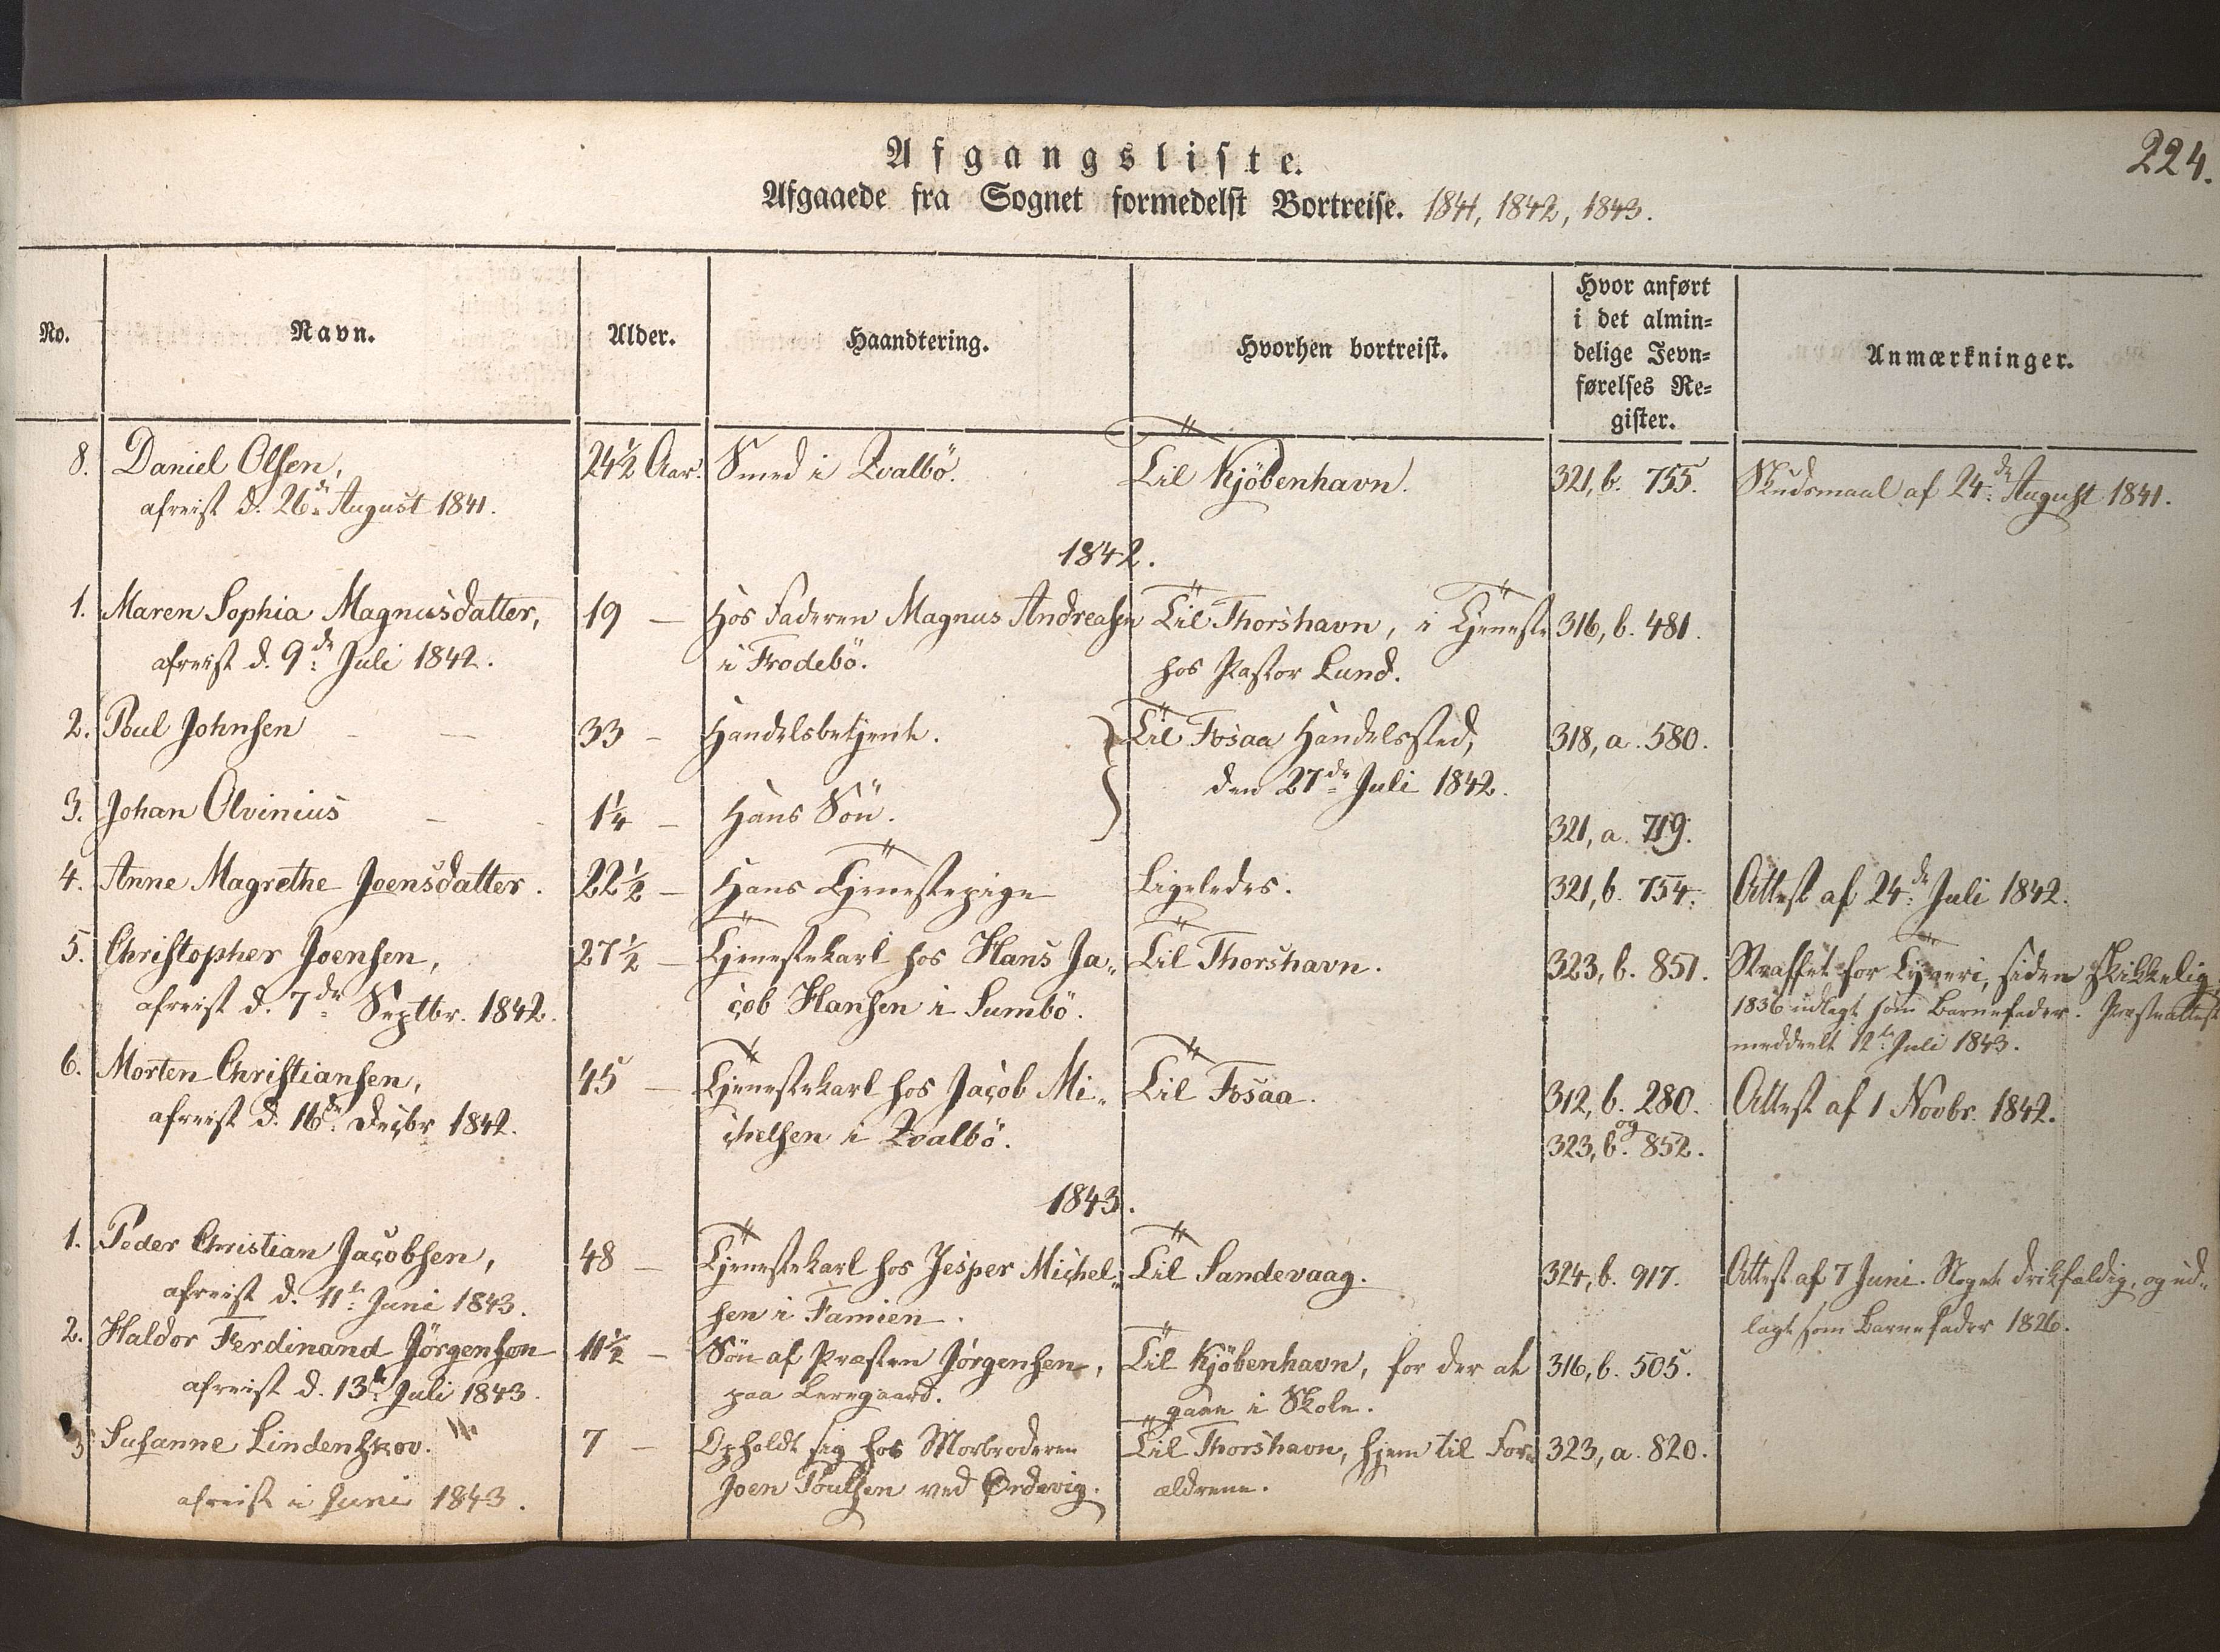 224.
Afgangsliste.
Afgaaede fra Sognet formedelst Bortreise. 1841, 1842, 1843.
No. Navn. Alder. Haandtering. Hvorhen bortreist. Hvor anført i det almin= delige Jevn= førelses Re= gister. Anmærkninger.
8. Daniel Olsen, 24½ Aar. Smed i Qvalbö. Til Kjöbenhavn. 321, b. 755. Skudsmaal af 24de August 1841.
afreist d. 26de August 1841.
1842.
1. Maren Sophia Magnusdatter, 19 — Hos Faderen Magnus Andreasen Til Thorshavn, i Tjeneste 316, b. 481.
afreist d. 9de Juli 1842. i Frodebö. hos Pastor Lund.
2. Poul Johnsen — — 33 — Handelsbetjent. Til Fosaa Handelssted, 318, a. 580.
den 27de Juli 1842.
3. Johan Olvinius — - 1¼ — Hans Sön. 321, a. 719.
4. Anne Magrethe Joensdatter. 22½ — Hans Tjenestepige Ligeledes. 321, b. 754. Attest af 24de Juli 1842.
5. Christopher Joensen, 27½ — Tjenestekarl hos Hans Ja„ Til Thorshavn. 323, b. 851. Straffet for Tyveri, siden skikkelig
afreist d. 7de Septbr. 1842. cob Hansen i Sumbö. 1836 udlagt som Barnefader. Præsteattest
meddeelt 12te Juli 1843.
6. Morten Christiansen, 45 — Tjenestekarl hos Jacob Mi„ Til Fosaa. 312, b. 280. Attest af 1 Novbr. 1842.
afreist d. 16de Decbr 1842. chelsen i Qvalbö. og 323, b. 852.
1843.
1. Peder Christian Jacobsen, 48 — Tjenestekarl hos Jesper Michel„ Til Sandevaag. 324, b. 917. Attest af 7 Juni. Noget drikfældig, og ud„
afreist d. 11te Juni 1843. sen i Famien. lagt som Barnefader 1826.
2. Haldor Ferdinand Jörgensen 11½ — Sön af Præsten Jörgensen, Til Kjöbenhavn, for der at 316, b. 505.
afreist d. 13de Juli 1843. paa Qvregaard. gaae i Skole.
3 Susanne Lindenskov. 7 — Opholdt sig hos Morbroderen Til Thorshavn, hjem til For„ 323, a. 820.
afreist i Juni 1843. Joen Poulsen ved Ordevig. ældrene.